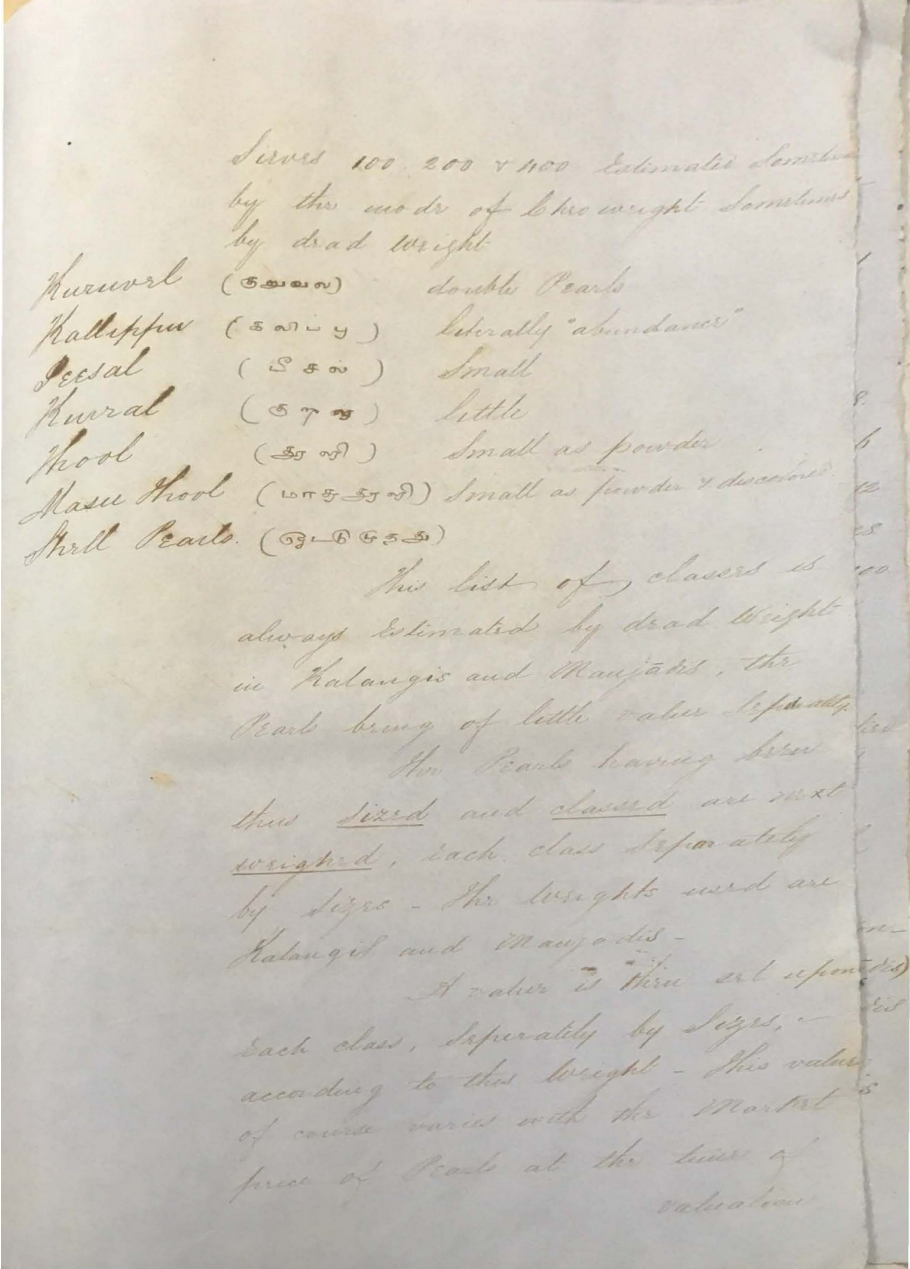 Sieves 100. 200 & 400 Estimated Sometimes
by the mode of Chev weight Sometimes
by dead weight
Kuruvel (குறுவல) double Pearls
Kallippu (கலிப்பு) literally "abundance"
Peesal (பீசல்) Small
Kurral (குறல) little
Thool (தூள்) Small as powder
Masu Thool (மாசுதூள்) Small as powder & discolored
Shell Pearls. (ஓட்டுமுத்து)
This list of classes is
always Estimated by dead weight
in Kalangis and Manjadis, the
Pearls being of little value Seperately.
The Pearls having been
thus Sized and classed are next
weighed, Each class Seperately
by Sizes - The weights used are
Kalangis and Manjadis -
A value is then set upon
Each class, Seperately by Sizes, -
according to this weight - This value
of course varies with the Market
price of Pearls at the time of
valuation